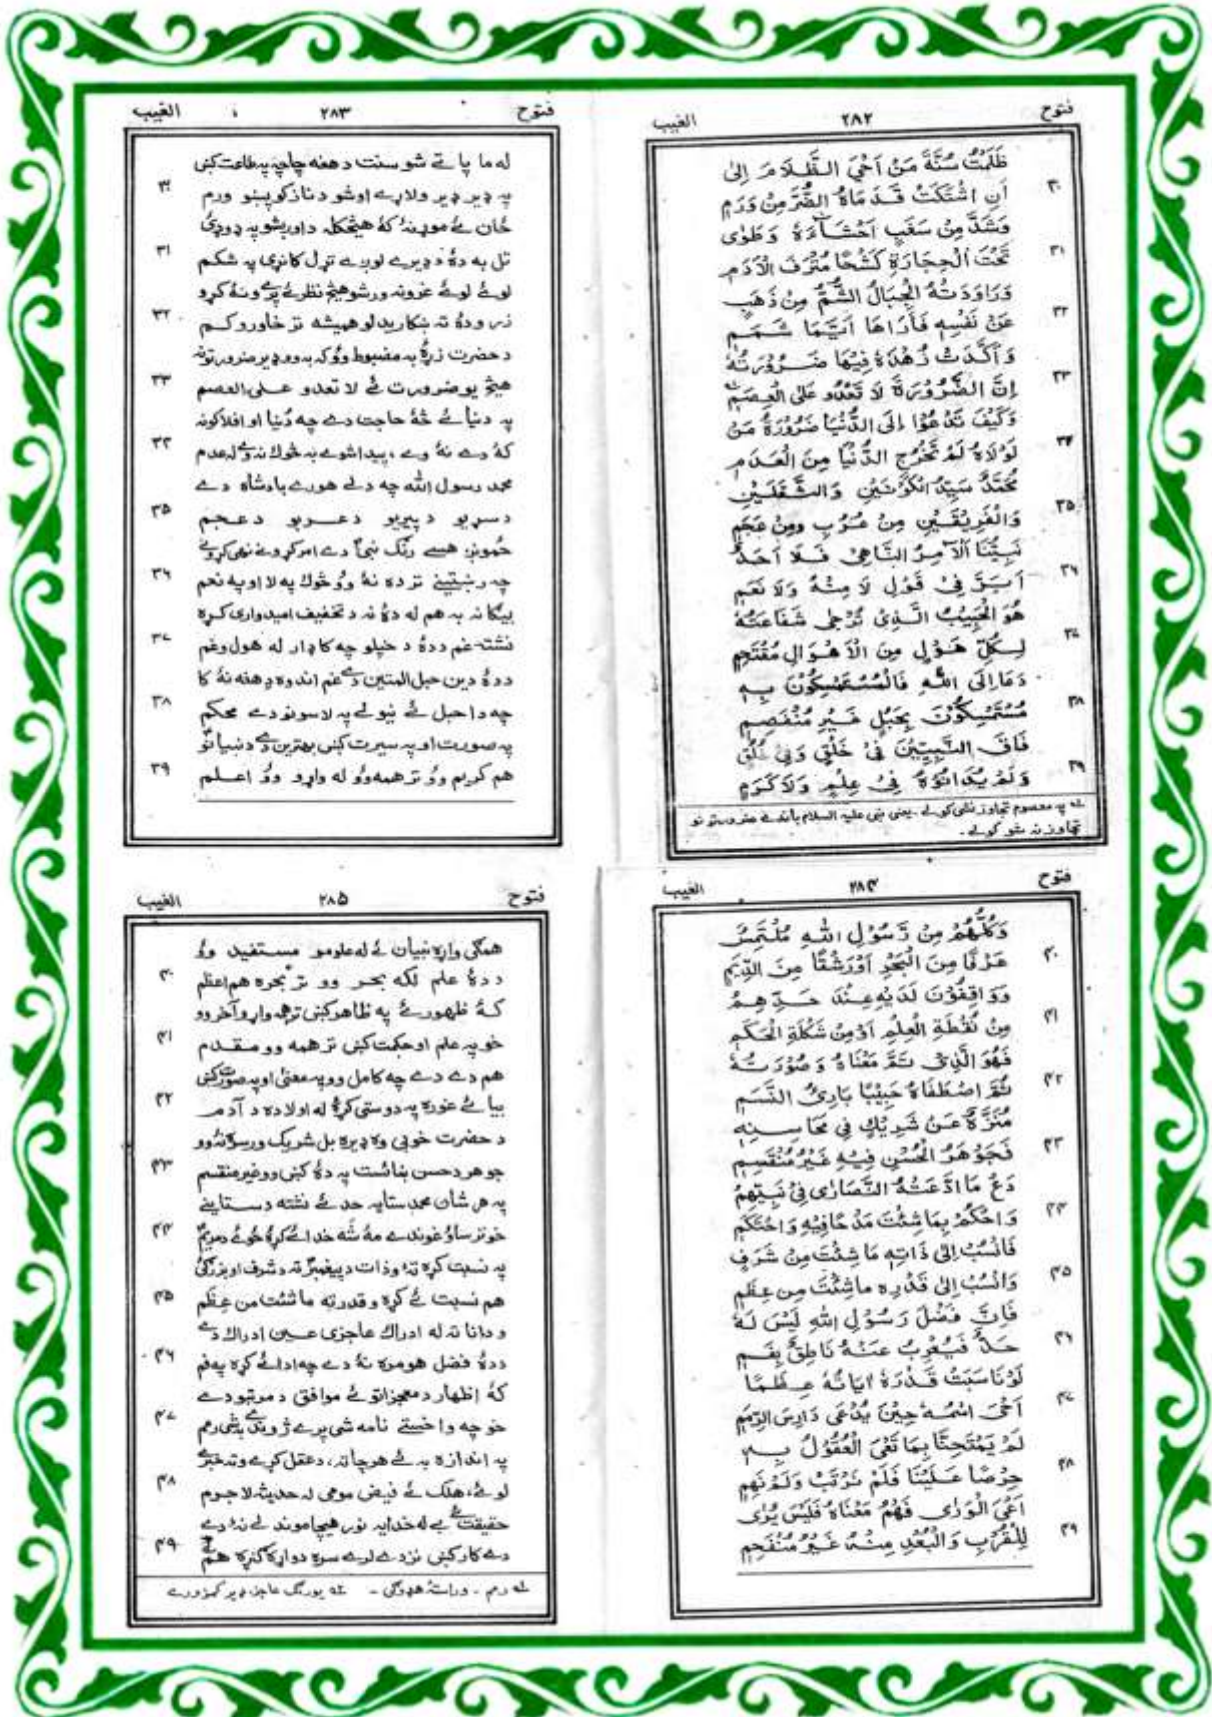 فتوح ۲۸۲ الغیب
ظَلَمْتُ سُنَّةَ مَنْ اَحْیَ الظَّلَامَ اِلٰی
۳۰ اَنِ اشْتَكَتْ قَدَمَاهُ الضُّرَّ مِنْ وَّرَمٍ
وَشَدَّ مِنْ سَغَبٍ اَحْشَآءَهٗ وَطَوٰی
۳۱ تَحْتَ الْحِجَارَةِ كَشْحًا مُتْرَفَ الْاَدَمِ
وَرَاوَدَتْهُ الْجِبَالُ الشُّمُّ مِنْ ذَهَبٍ
۳۲ عَنْ نَفْسِهٖ فَاَرَاهَا اَيَّمَا شَمَمٍ
وَاَكَّدَتْ زُهْدَهٗ فِيْهَا ضَرُوْرَتُهٗ
۳۳ اِنَّ الضَّرُوْرَةَ لَا تَعْدُو عَلَی الْعِصَمِ
وَكَيْفَ تَدْعُوْا اِلَی الدُّنْيَا ضَرُوْرَةُ مَنْ
۳۴ لَوْلَاهُ لَمْ تَخْرُجِ الدُّنْيَا مِنَ الْعَدَمِ
مُحَمَّدٌ سَيِّدُ الْكَوْنَيْنِ وَالثَّقَلَيْنِ
۳۵ وَالْفَرِيْقَيْنِ مِنْ عُرْبٍ وَمِنْ عَجَمٍ
نَبِيُّنَا الْاٰمِرُ النَّاهِیْ فَلَا اَحَدٌ
۳۶ اَبَرَّ فِیْ قَوْلِ لَا مِنْهُ وَلَا نَعَمٍ
هُوَ الْحَبِيْبُ الَّذِیْ تُرْجٰی شَفَاعَتُهٗ
۳۷ لِكُلِّ هَوْلٍ مِنَ الْاَهْوَالِ مُقْتَحِمٍ
دَعَا اِلَی اللّٰهِ فَالْمُسْتَمْسِكُوْنَ بِهٖ
۳۸ مُسْتَمْسِكُوْنَ بِحَبْلٍ غَيْرِ مُنْفَصِمٍ
فَاقَ النَّبِيِّيْنَ فِیْ خَلْقٍ وَفِیْ خُلُقٍ
۳۹ وَلَمْ يُدَانُوْهُ فِیْ عِلْمٍ وَلَا كَرَمٍ
له په معصوم تجاوز نشی کولے ۔ یعنی نبی علیه السلام باندے ضرورتونو
تجاوز نه شو کولے ۔
فتوح ۲۸۳ الغیب
له ما پاتے شو سنت د هغه چاچه په طاعت کښ
۳۰ په ډیر ډیر ولاړے اوشو د نازکو پښو ورم
ځان ئے موړ نۀ کۀ هیڅکله د اوربشو په ډوډۍ
۳۱ تل به دۀ د ډیرے لوږے تړل کاڼی په شکم
لوئے لوئے غرونه ورشو هیڅ نظر ئے پرے ونۀ کړو
۳۲ زر و دۀ ته ښکاریدلو همیشه تر خاورو کم
د حضرت زړۀ به مضبوط وو که به وو ډیر ضرورتونه
۳۳ هیڅ یو ضرورت ئے لا تعدو علی العصم
په دنیا ئے څۀ حاجت دے چه دُنیا او افلاکونه
۳۴ کۀ دے نۀ وے ، پیدا شوے به څوك نه وے له عدم
محمد رسول الله چه د لے هورے بادشاه دے
۳۵ د سړیو د پیریو د عربو د عجم
ځمونږ هسے رنګ نبی دے امر کړو نے نهی کړو نے
۳۶ چه رښتینے تر ده نۀ وو څوك په لا او په نعم
بیګانه به هم له دۀ نه د تخفیف امیدواری کړه
۳۷ نشته غم د دۀ د خپلو چه کا ډار له هول و غم
د دۀ دین حبل المتین دے غم اندوه د هغه نۀ کا
۳۸ چه دا حبل ئے نیولے په لاسونو دے محکم
په صورت او په سیرت کښ بهترین دے د نبیانو
۳۹ هم کریم وو تر همه وو له واړو وو اعلم
فتوح ۲۸۴ الغیب
وَكُلُّهُمْ مِنْ رَّسُوْلِ اللّٰهِ مُلْتَمِسٌ
۴۰ غَرْفًا مِنَ الْبَحْرِ اَوْ رَشْفًا مِنَ الدِّيَمِ
وَوَاقِفُوْنَ لَدَيْهِ عِنْدَ حَدِّهِمْ
۴۱ مِنْ نُقْطَةِ الْعِلْمِ اَوْ مِنْ شَكْلَةِ الْحَكَمِ
فَهُوَ الَّذِیْ تَمَّ مَعْنَاهُ وَصُوْرَتُهٗ
۴۲ ثُمَّ اصْطَفَاهُ حَبِيْبًا بَارِئُ النَّسَمِ
مُنَزَّهٌ عَنْ شَرِيْكٍ فِیْ مَحَاسِنِهٖ
۴۳ فَجَوْهَرُ الْحُسْنِ فِيْهِ غَيْرُ مُنْقَسِمٍ
دَعْ مَا ادَّعَتْهُ النَّصَارٰی فِیْ نَبِيِّهِمْ
۴۴ وَاحْكُمْ بِمَا شِئْتَ مَدْحًا فِيْهِ وَاحْتَكِمْ
فَانْسُبْ اِلٰی ذَاتِهٖ مَا شِئْتَ مِنْ شَرَفٍ
۴۵ وَانْسُبْ اِلٰی قَدْرِهٖ مَا شِئْتَ مِنْ عِظَمٍ
فَاِنَّ فَضْلَ رَسُوْلِ اللّٰهِ لَيْسَ لَهٗ
۴۶ حَدٌّ فَيُعْرِبُ عَنْهُ نَاطِقٌ بِفَمٍ
لَوْ نَاسَبَتْ قَدْرَهٗ اٰيَاتُهٗ عِظَمًا
۴۷ اَحْیَ اسْمُهٗ حِيْنَ يُدْعٰی دَارِسَ الرِّمَمِ
لَمْ يَمْتَحِنَّا بِمَا تَعْیَ الْعُقُوْلُ بِهٖ
۴۸ حِرْصًا عَلَيْنَا فَلَمْ نَرْتَبْ وَلَمْ نَهِمِ
اَعْیَ الْوَرٰی فَهْمُ مَعْنَاهُ فَلَيْسَ يُرٰی
۴۹ لِلْقُرْبِ وَالْبُعْدِ مِنْهُ غَيْرُ مُنْفَحِمٍ
فتوح ۲۸۵ الغیب
همګی واړه نبیان ئے له علومو مستفید وو
۴۰ د دۀ علم لکه بحر وو تر بحره هم اعظم
کۀ ظهور ئے په ظاهر کښ تر همه واړو آخر وو
۴۱ خو په علم او حکمت کښ تر همه وو مقدم
هم دے دے چه کامل وو په معنی او په صورت کښ
۴۲ بیا ئے غوره په دوستی کړۀ له اولاده د آدم
د حضرت خوبی وه ډیره بل شریک ورسره نۀ وو
۴۳ جوهر د حسن ښائست په دۀ کښ وو غیر منقسم
په هر شان محمد ستایه حد ئے نشته د ستاینے
۴۴ خو ترساؤ غوندے مۀ شه خدائے کړۀ خوئے د مریم
په نسبت کړه تۀ و ذات د پیغمبر ته د شرف او بزرګی
۴۵ هم نسبت ئے کړه و قدر ته ما شئت من عِظَم
و دانا ته له ادراك عاجزی عین ادراك دے
۴۶ د دۀ فضل هومره نۀ دے چه ادا ئے کړه په فم
کۀ اظهار د معجزاتو ئے موافق د مرتبو دے
۴۷ خو چه واخستے نامه شی پرے ژوندی به شی رمم
په اندازه به ئے هر چا ته ، د عقل کړے وته خبرے
۴۸ لوئے، هلك ئے فیض مومی له حدیثه لاجرم
حقیقت ئے بے له خدایه نور هیچا موندلے نۀ دے
۴۹ دے کار کښ نزدے لرے سره دواړه ګنړه هم
له رمم ۔ وراسته هډوکی ۔ له یو رنګ عاجز، ډیر کمزورے